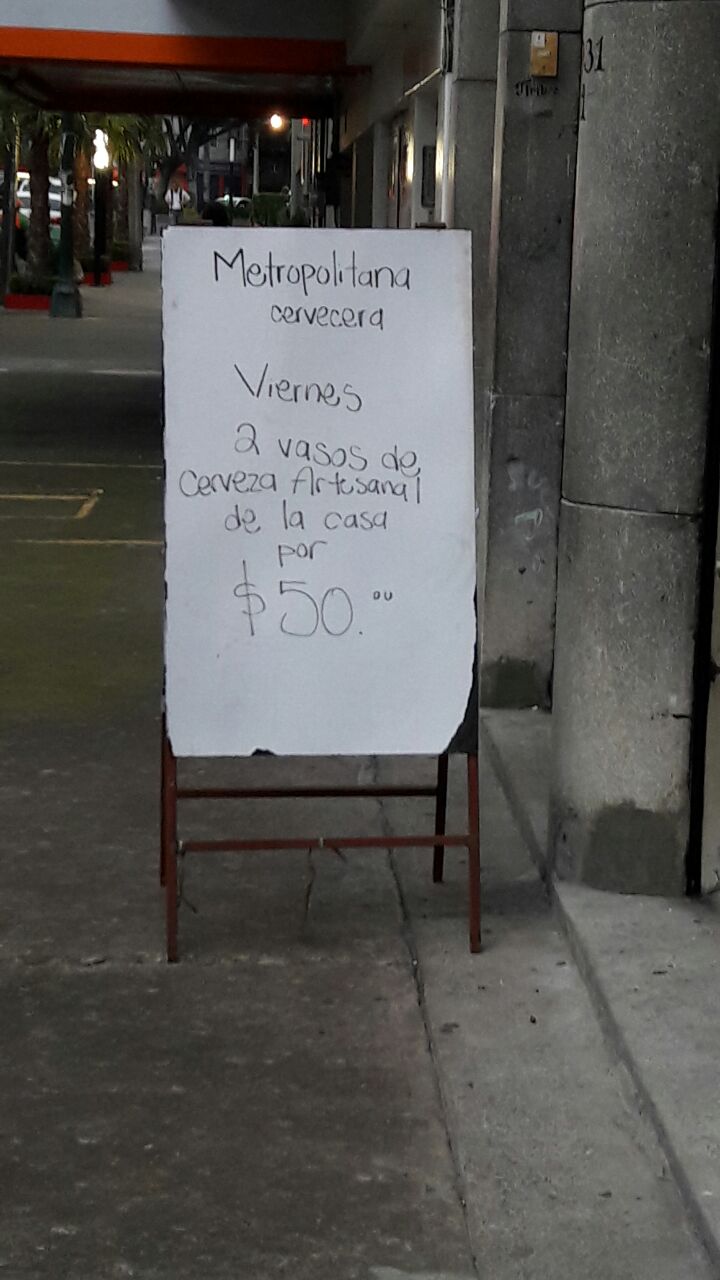 Metropolitana
cervecera
Viernes
2 vasos de
cerveza Artesanal
de la casa
por
$50.00
31